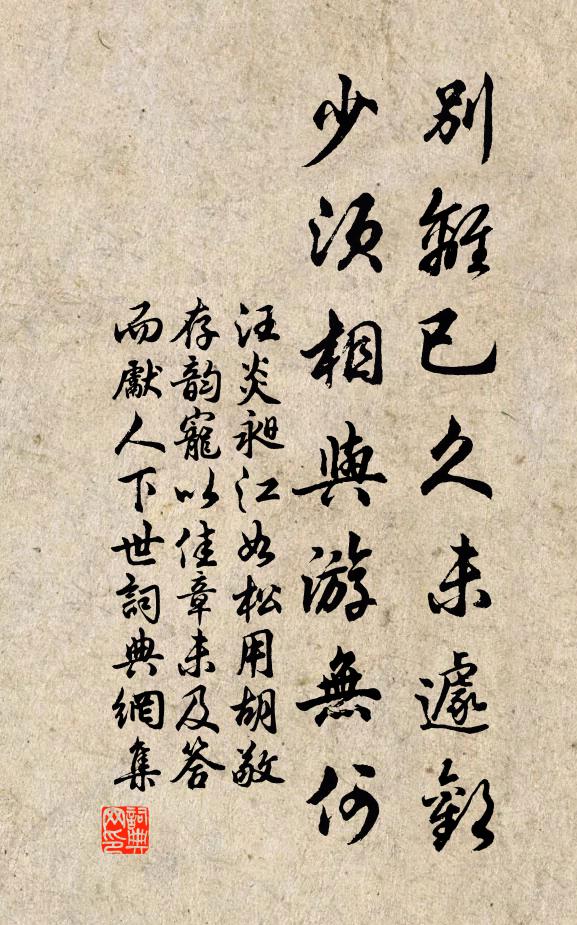 別離已久未遽
少須相與游無何
汪炎昶江如松用胡敬
存韵寵以佳章未及答
而獻人下世詞典網集
詞典
网印